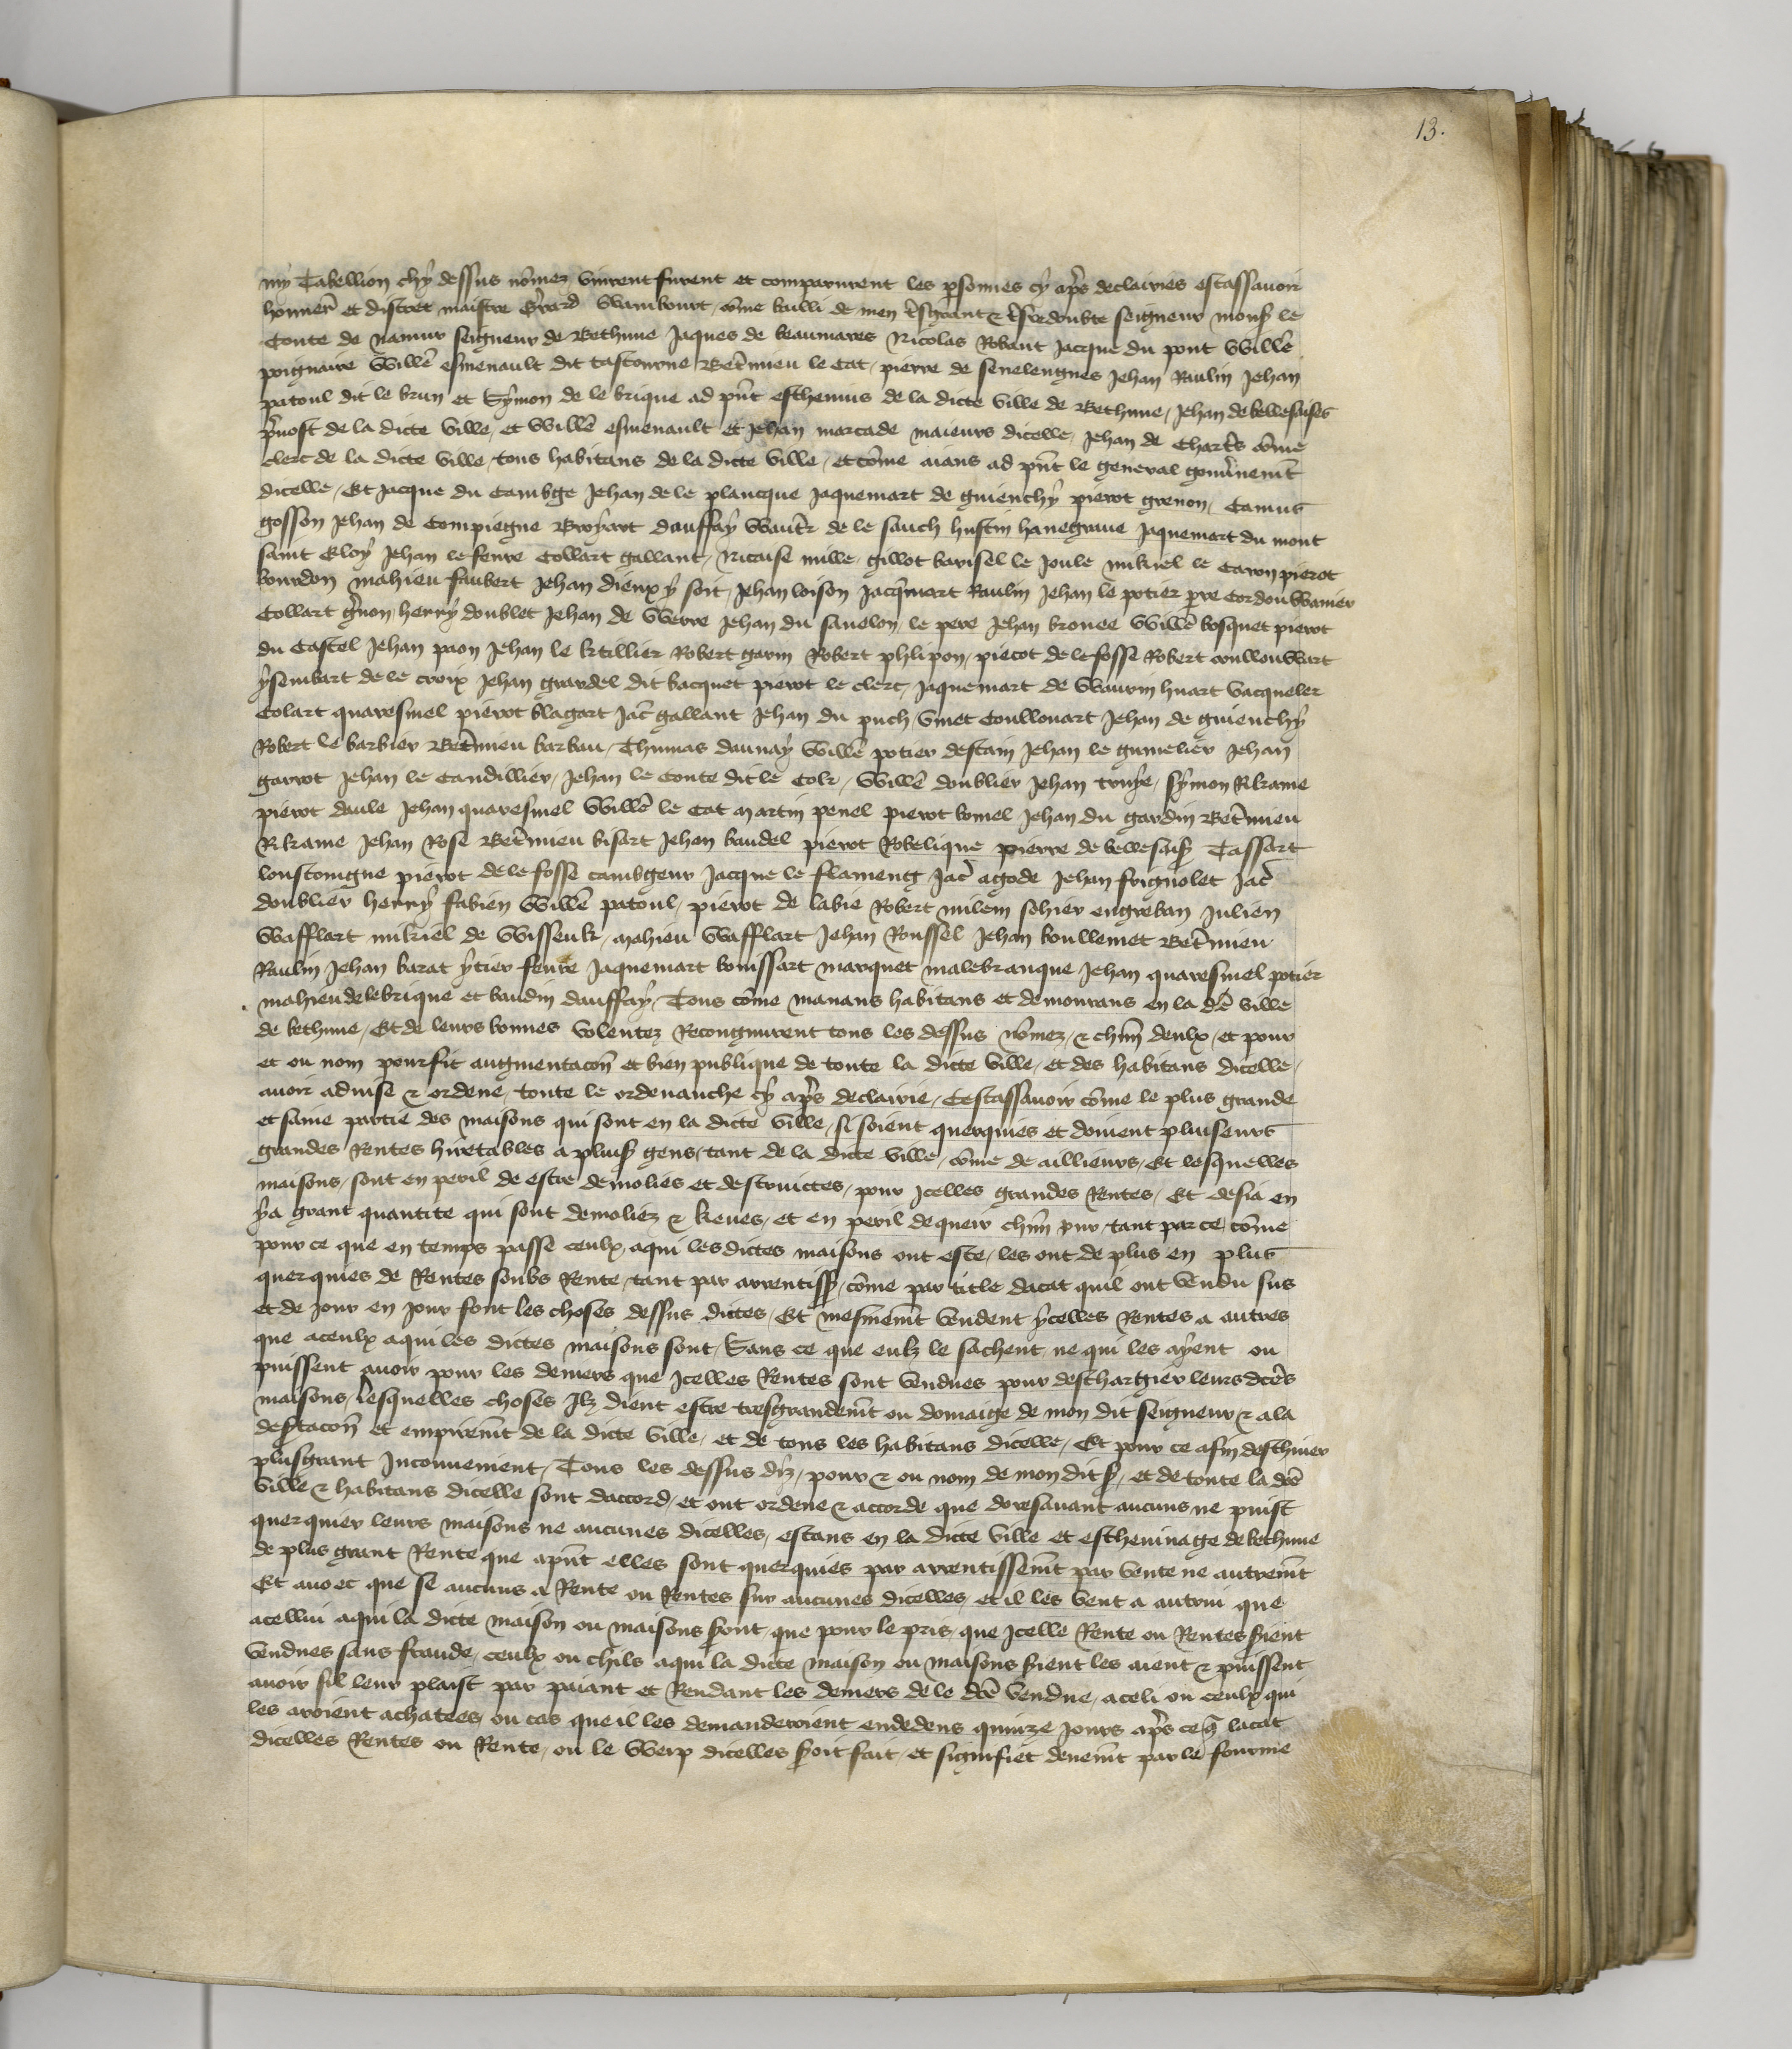 13.
my Tabellion chy dessus nōmez vinrent furent et comparurent les psonnes cy apr̄s declairies estassauoir
honner̄ et discret maistre Gr̄ard Wambourt cōme bailli de men tr̄sgrant & tr̄sredoubte seigneur monsr̄ le
Conte de namur seigneur de Bethune Jaques de beaumares Nicolas Robaut Jacque du pont Willē
poignaire Willē esmenault dit tastourne Bet̄mieu le Cat pierre de senelengues Jehan Raulin Jehan
patoul dit le brun et Symon de le brique ad pn̄t escheuins de la dicte ville de Bethune Jehan de bellesaises
p̄uost de la dicte ville et Willē esmenault et Jehan marcade maieurs dicelle Jehan de Chart̄s cōme
clerc de la dicte ville tous habitans de la dicte ville et cōme aians ad pn̄t le general gouūnem̄t
dicelle Et Jacque du Cambge Jehan de le plancque Jaquemart de guienchy pierot grenon Camus
gosson Jehan de Compiegne Broyart dauffay Waut̄r de le sauch hustin hanegraue Jaquemart du mont
saint Eloy Jehan le feure Collart gallant Nicaise mille gillot barisel le Joule mikiel le Caron pierot
bourdon mahieu faubert Jehan dieux y soit Jehan loison Jacq̄mart Raulin Jehan le potier pere Cordouwanier
Collart gn̄on henry doublet Jehan de Werre Jehan du sauelon le pere Jehan brouee Willē bosquet pierot
du Castel Jehan paon Jehan le ktillier Robert garin Robert phlipon pierot de le fosse Robert coullouwart
ysembart de le croix Jehan grardel dit bacquet pierot le clerc Jaquemart de Waurin huart vacqueler
Colart quaresmel pierot blagart Jac̄ gallant Jehan du puch vinet Coullouart Jehan de guienchy
Robert le barbier Bet̄mieu barbau Thumas daunay Willē potier destain Jehan le gumelier Jehan
garrot Jehan le Candillier Jehan le Conte dit le Colr Willē doublier Jehan truye symon Rkrame
pierot daule Jehan quaresmel Willē le Cat martin penel pierot bomel Jehan du gardin Bet̄mieu
Rkrame Jehan Rose Bet̄mieu bisart Jehan baudel pierot Robelique pierre de bellesaisr̄ Tassart
loustongne pierot de le fosse cambgeur Jacque le flameng Jac̄ agode Jehan frignolet Jac̄
doublier henry fabien Willē patoul pierot de labie Robert milem sohier engreban Julien
Wafflart mikiel de Wissenk mahieu Wafflart Jehan Roussel Jehan boullemet Bet̄mieu
Raulin Jehan barat ytier feure Jaquemart bouissart marquet malebranque Jehan quaresmel potier
mahieu de lebrique et baudin dauffay Tous cōme manans habitans et demourans en la dc̄e ville
de bethune Et de leurs bonnes volentez Recongnurent tous les dessus nōmez & chūn deulx et pour
et ou nom pourfit augmentacōn et bien publique de toute la dicte ville et des habitans dicelle
auoir aduise & ordene toute le ordenanche cy apr̄s declairie Cestassauoir cōme le plus grande
et saine partie des maisons qui sont en la dicte ville si soient querquies et doiuent pluiseurs
grandes Rentes hiretables a pluisr̄ gens tant de la dicte ville cōme de aillieurs Et lesquelles
maisons sont en peril de estre demolies et destruictes pour Jcelles grandes Rentes Et desia en
ya grant quantite qui sont demoliez & keues et en peril de queir chūn jour tant par ce cōme
pour ce que en temps passe ceulx aqui lesdictes maisons ont este les ont de plus en plus
querquies de Rentes soubs Rente tant par arrentissr̄ cōme par title dacat quil ont vendu sus
et de jour en jour font les choses dessus dictes Et mesmem̄t vendent ycelles Rentes a autres
que aceulx aqui les dictes maisons sont Sans ce que eulz le sachent ne qui les ayent ou
puissent auoir pour les deniers que Jcelles Rentes sont vendues pour deschargier leurs dc̄es
maisons lesquelles choses Jlz dient estre tresgrandem̄t ou domaige de mon dit seigneur & ala
destacōn et empirem̄t de la dicte ville et de tous les habitans dicelle Et pour ce afin deschiuer
plusgrant Jnconuenient Tous les dessus dz̄ pour & ou nom de mon dit sr̄ et de toute la dc̄e
ville & habitans dicelle sont daccord et ont ordene & accorde que doresauant aucuns ne puist
querquier leurs maisons ne aucunes dicelles estans en la dicte ville et escheuinage de bethune
de plus grant Rente que apn̄t elles sont querquies par arrentissem̄t par vente ne autrem̄t
Et auoec que se aucuns a Rente ou Rentes sur aucunes dicelles et il les vent a autrui que
acellui aqui la dicte maison ou maisons sr̄ont que pour le pris que Jcelle Rente ou Rentes sr̄ient
vendues sans fraude ceulx ou chils aqui la dicte maison ou maisons sr̄ient les aient & puissent
auoir sil leur plaist par paiant et Rendant les deniers de le dc̄e vendue aceli ou ceulx qui
les aroient achatees ou cas que il les demanderoient endedens quinze jours apr̄s ce q̄ lacat
dicelles Rentes ou Rente ou le Werp dicelles sr̄oit fait et signifiet deuem̄t par le fourme